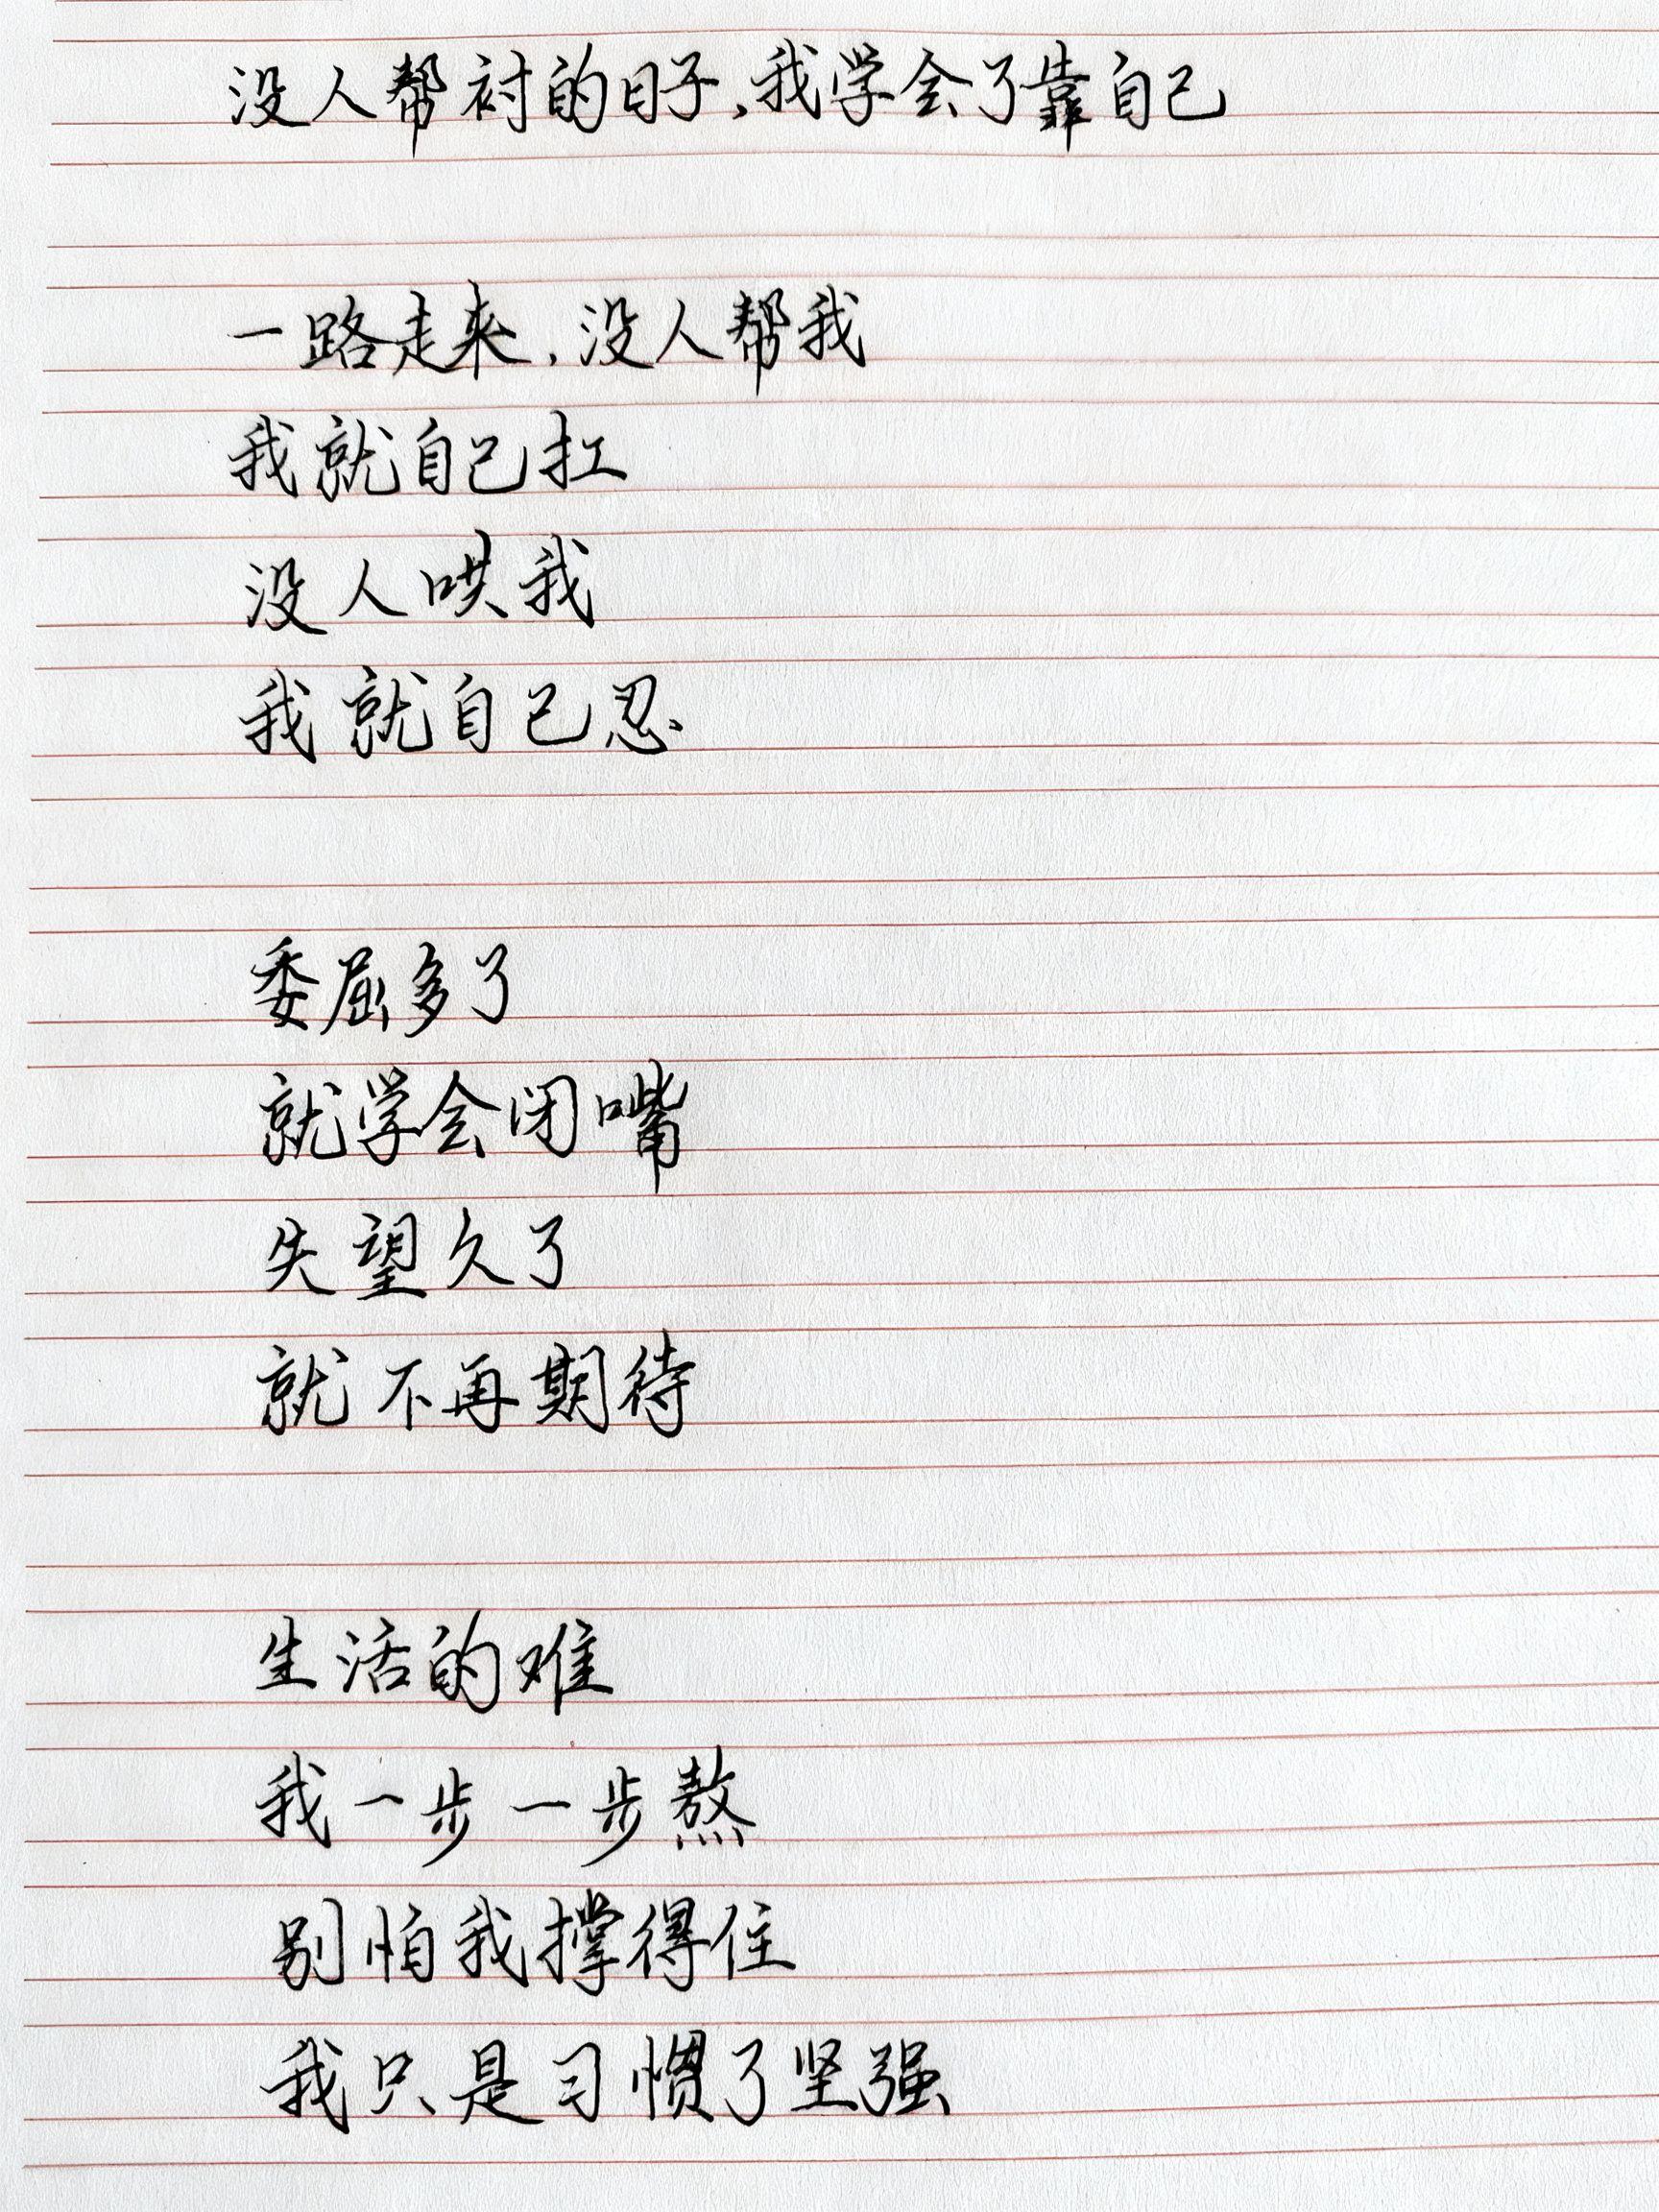 没人帮衬的日子,我学会了靠自己
一路走来,没人帮我
我就自己扛
没人哄我
我就自己忍
委屈多了
就学会闭嘴
失望久了
就不再期待
生活的难
我一步一步熬
别怕我撑得住
我只是习惯了坚强